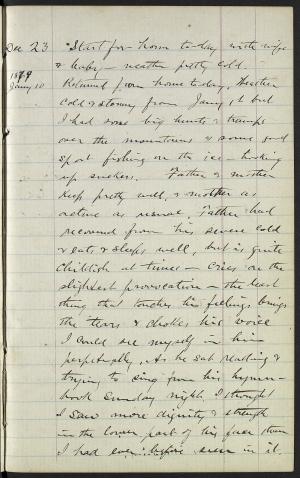 Dec 23 Start for home to-day with wife
& baby - weather pretty cold.
1879
Jany 10 Returned from home to-day, Weather
cold & stormy from Jany 1st but
I had some big hunts & tramps
over the mountains & some good
sport fishing on the ice - hooking
up suckers. Father & mother
keep pretty well, & mother as
active as usual. Father had
recovered from his severe cold
& eats & sleeps well, but is quite
childish at times - cries on the
slightest provocation - the least
thing that touches his feelings brings
the tears & chokes his voice
I could see myself in him
perpetually. As he sat reading &
trying to sing from his hymn-
book Sunday night I thought
I saw more dignity & strength
in the lower part of his face than
I had ever before seen in it.